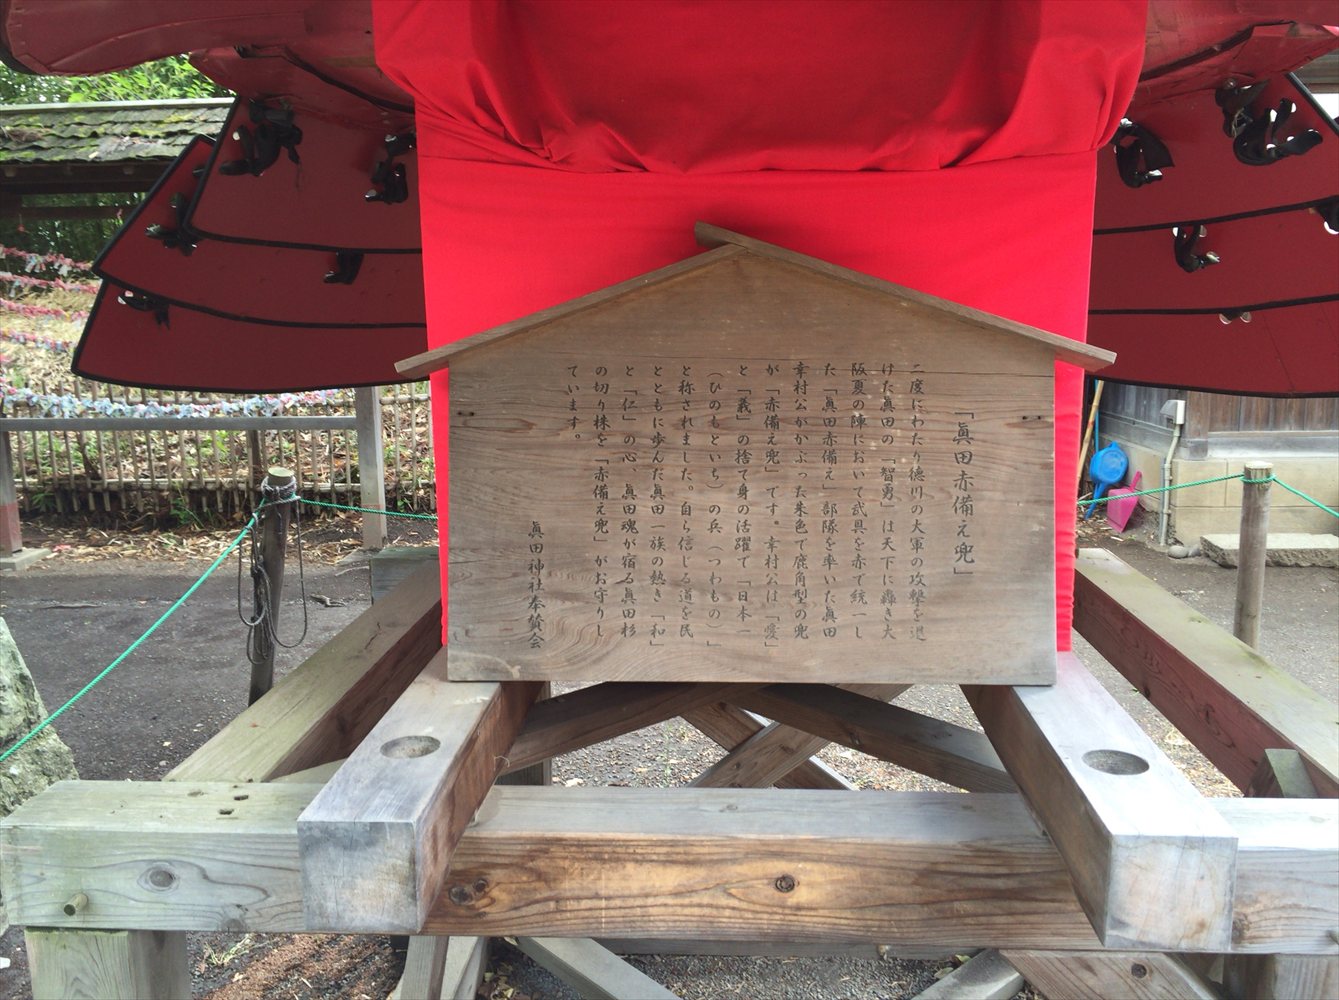 「眞田赤備え兜」
二度にわたり徳川の大軍の攻撃を退
けた眞田の「智勇」は天下に轟き大
阪夏の陣において武具を赤で統一し
た「眞田赤備え」部隊を率いた眞田
幸村公がかぶった朱色で鹿角型の兜
が「赤備え兜」です。幸村公は、「愛」
と「義」の捨て身の活躍で「日本一
（ひのもといち）の兵（つわもの）」
と称されました。自ら信じる道を民
とともに歩んだ眞田一族の熱き「和」
と「仁」の心、眞田魂が宿る眞田杉
の切り株を「赤備え兜」がお守りし
ています。
眞田神社奉賛会